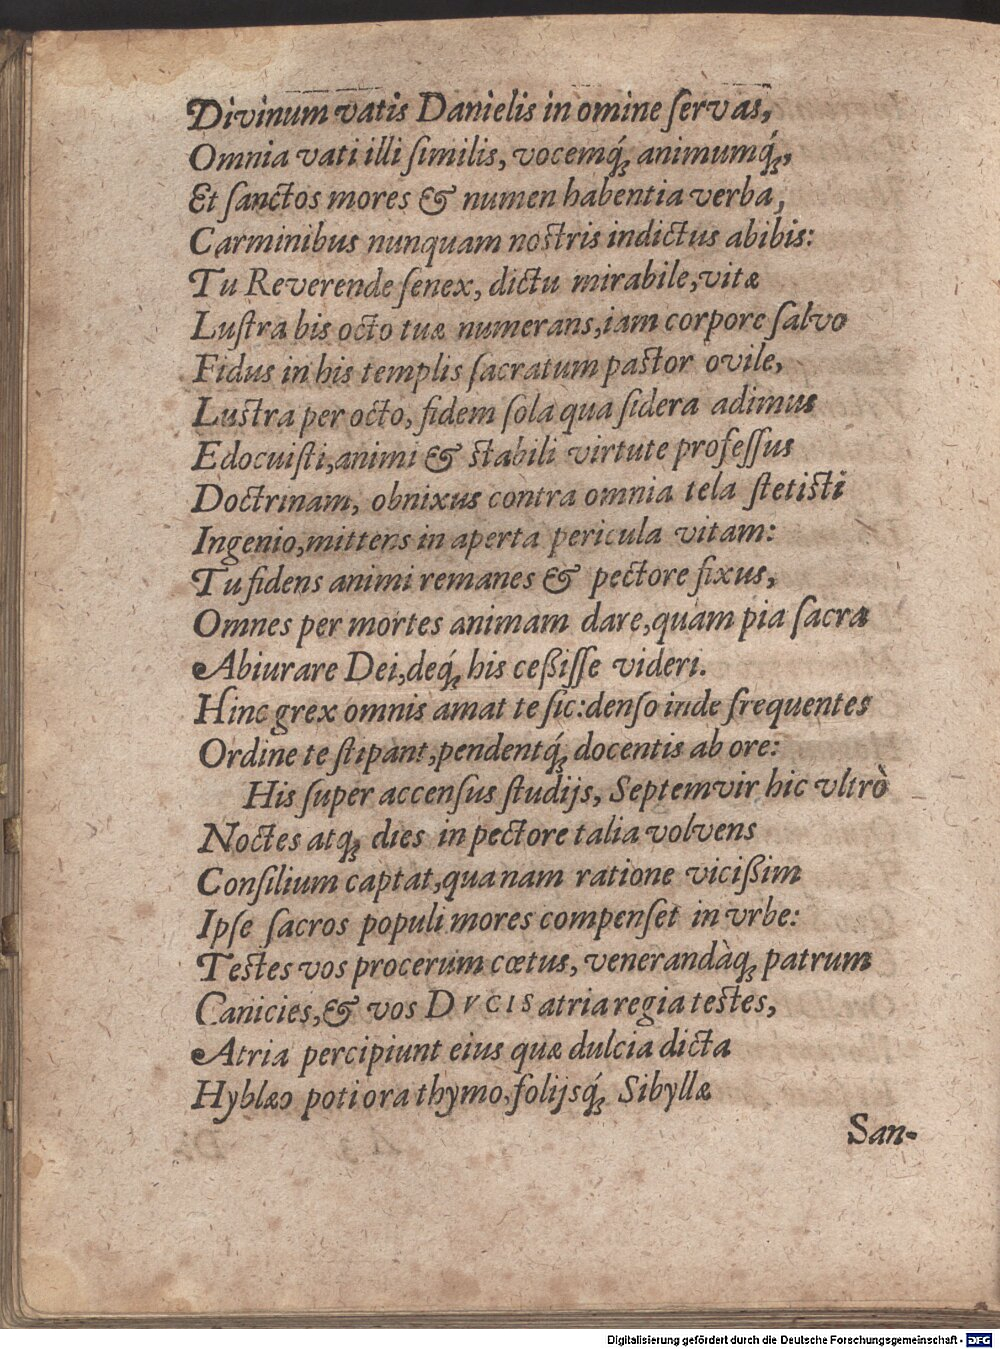 Divinum vatis Danielis in omine ſervas,
Omnia vati illi ſimilis, vocemq́ꝫ animumq́ꝫ,
Et ſanctos mores & numen habentia verba,
Carminibus nunquam nostris indictus abibis:
Tu Reverende ſenex, dictu mirabile, vitæ
Luſtra bis octo tuæ numerans, iam corpore ſalvo
Fidus in his templis ſacratum pastor ovile,
Lustra per octo, fidem ſola qua ſidera adimus
Edocuiſti, animi & stabili virtute profeſſus
Doctrinam, obnixus contra omnia tela ſtetisti
Ingenio, mittens in aperta pericula vitam:
Tu fidens animi remanes & pectore fixus,
Omnes per mortes animam dare, quam pia ſacra
Abiurare Dei, deq́ꝫ his ceßiſſe videri.
Hinc grex omnis amat te ſic: denſo inde frequentes
Ordine te ſtipant, pendentq́ꝫ docentis ab ore:
His ſuper accenſus ſtudijs, Septemvir hic vltrò
Noctes atqꝫ dies in pectore talia volvens
Conſilium captat, quanam ratione vicißim
Ipſe ſacros populi mores compenſet in vrbe:
Testes vos procerum cœtus, venerandàqꝫ patrum
Canicies, & vos DVCIS atria regia testes,
Atria percipiunt eius quæ dulcia dicta
Hyblæo potiora thymo, folijsq́ꝫ Sibyllæ
San-
Digitalisierung gefördert durch die Deutsche Forschungsgemeinschaft - DFG